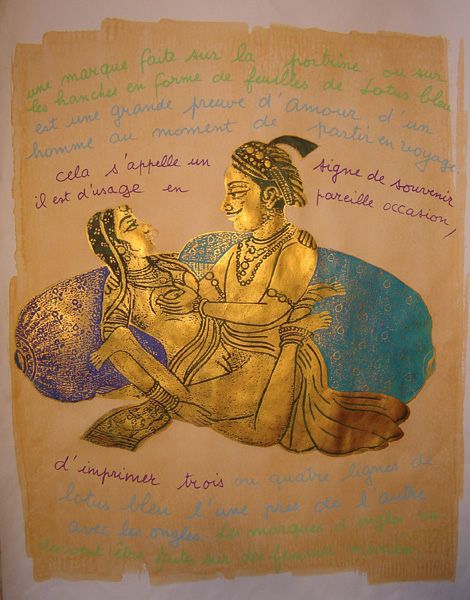 une marque faite sur la poitrine ou sur
les hanches en forme de feuilles de Lotus bleu
est une grande preuve d'amour d'un
homme au moment de partir en voyage.
cela s'appelle un signe de souvenir
il est d'usage en pareille occasion,
d'imprimer trois ou quatre lignes de
lotus bleu l'une près de l'autre
avec les ongles. Les marques d'ongles ne
doivent être faites sur des femmes mariées.